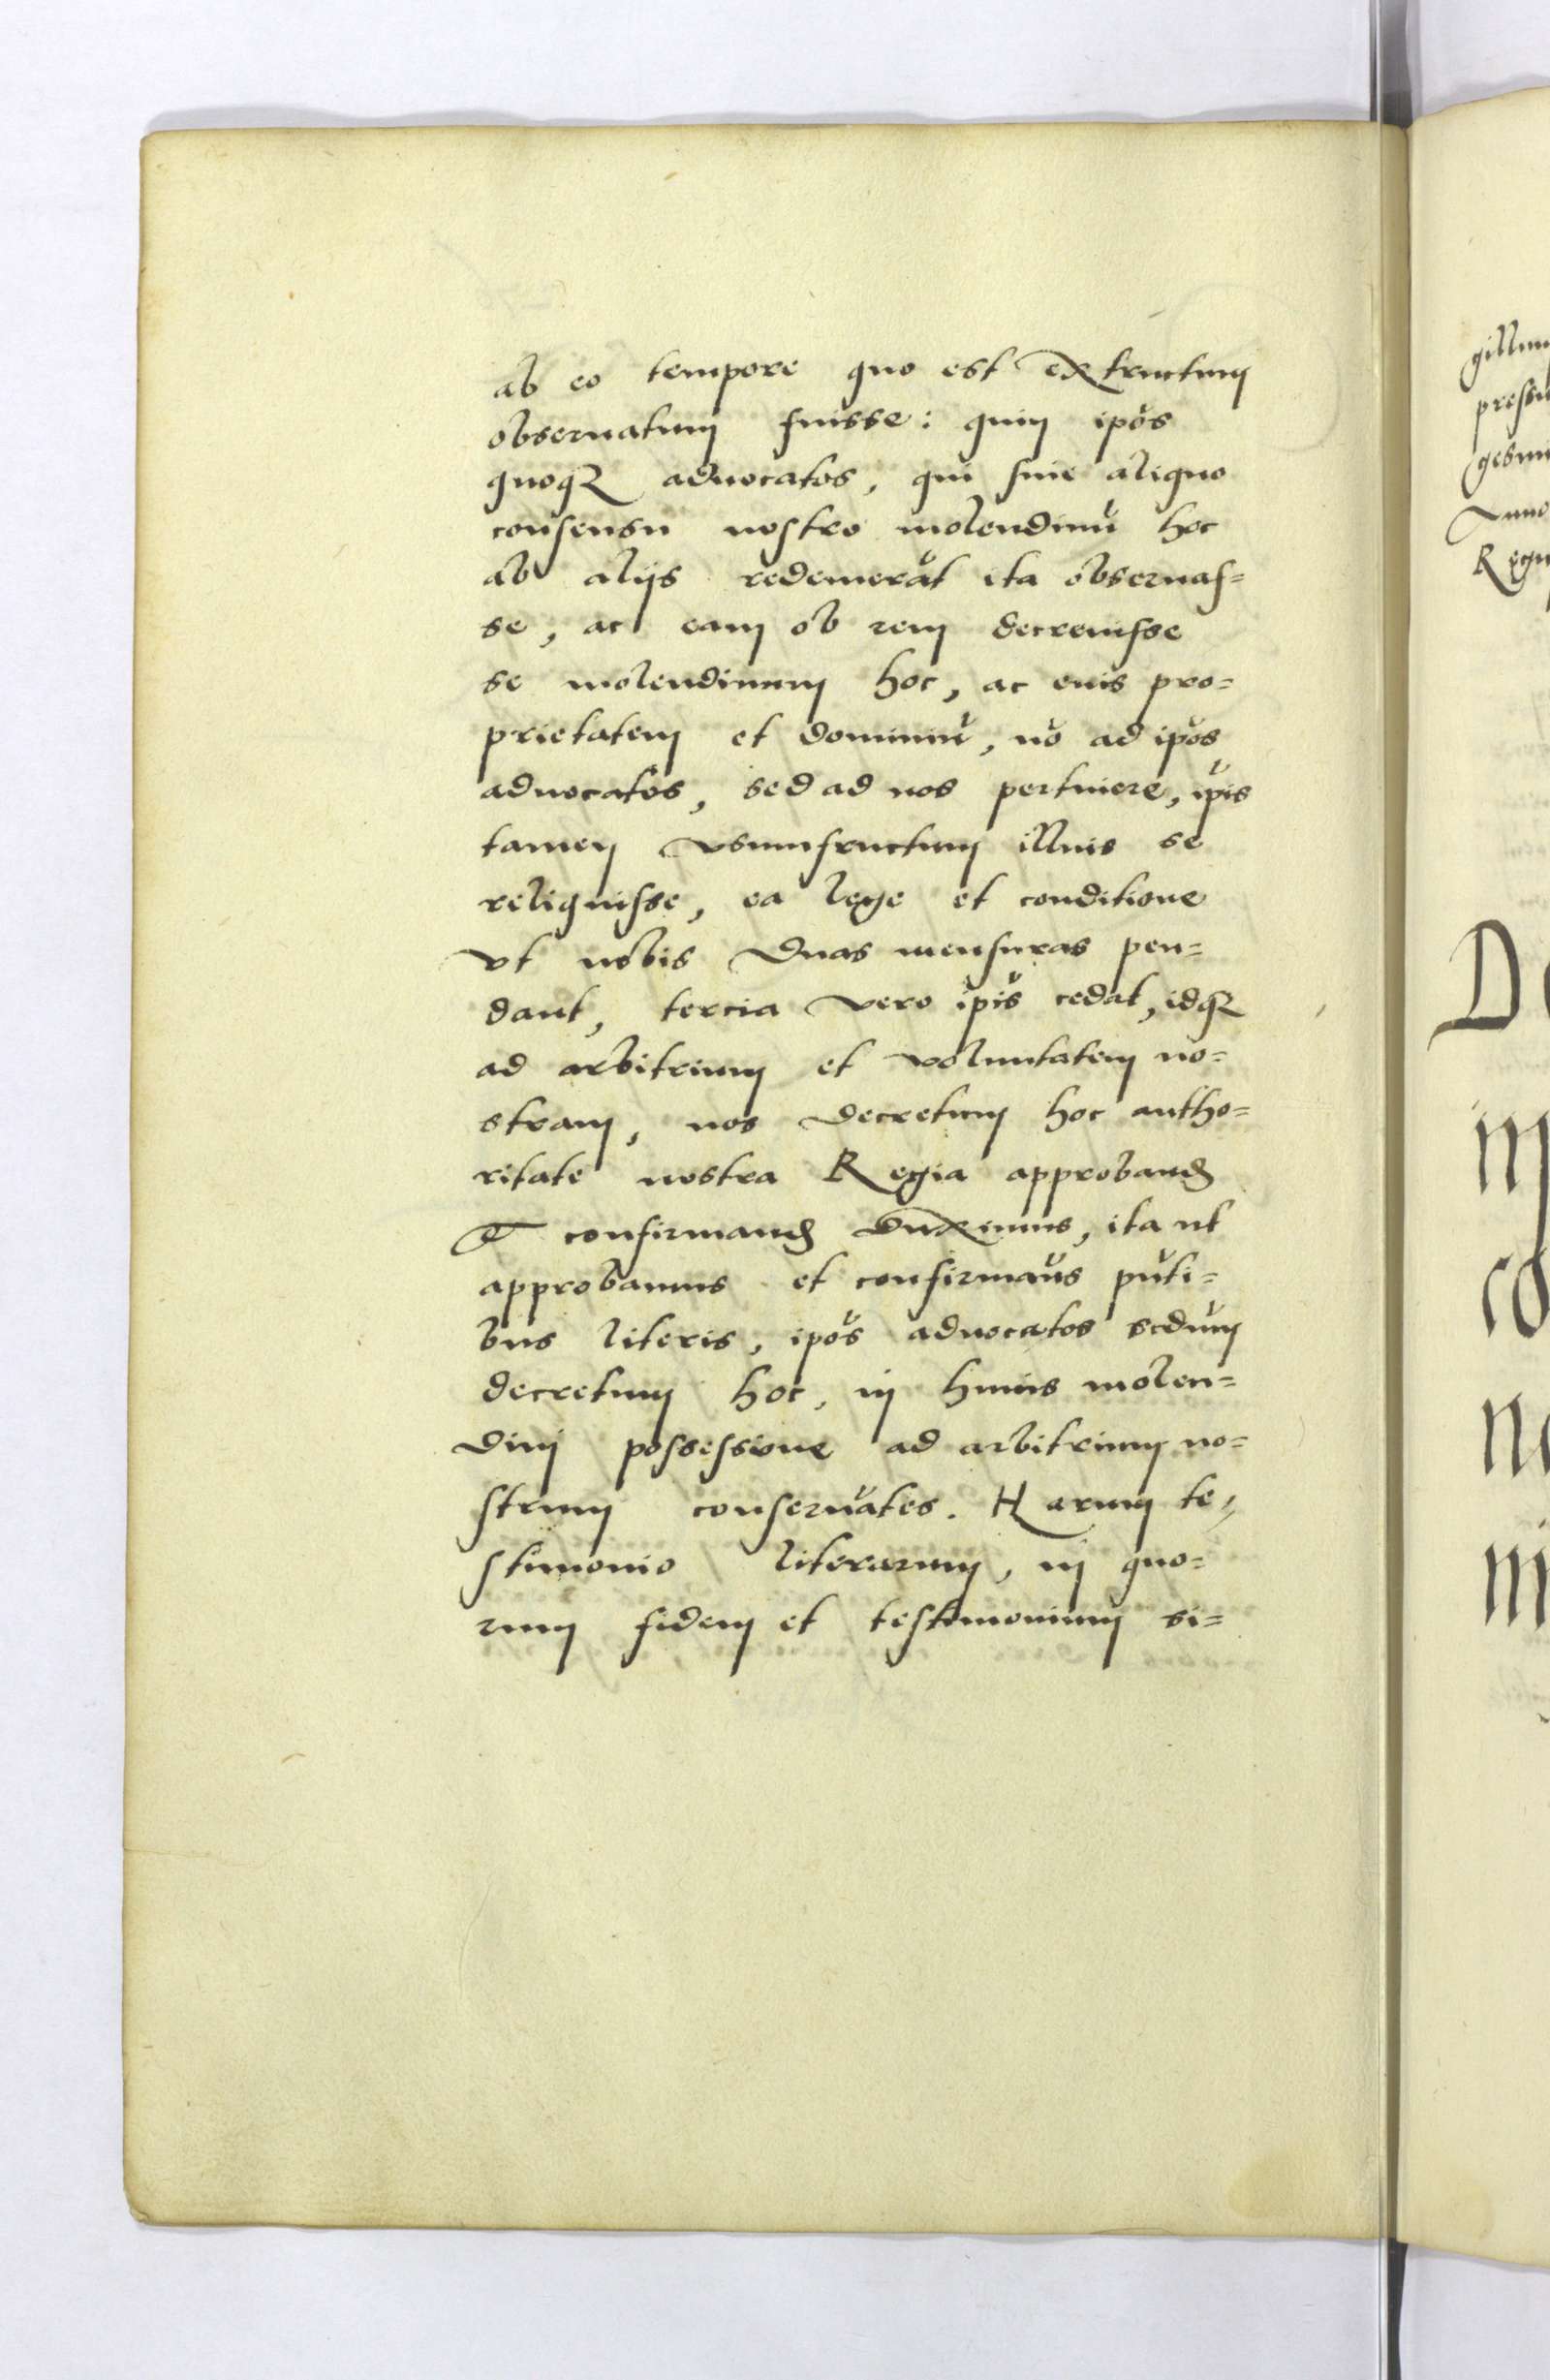 ab eo tempore quo est extructum
obseruatum fuisse: quin ipos
quoqz aduocatos, qui sine aliquo
consensu nostro molendinū hoc
ab alijs redemerāt ita obseruas=
se, ac eam ob rem decreuisse
se molendinum hoc, ac euis pro=
prietatem et dominiū, nō ad ipos
aduocatos, sed ad nos pertinere, ipis
tamen vsumfructum illius se
reliquisse, ea lege et conditione
vt nobis duas mensuras pen=
dant, tercia vero ipis cedat, idqz
ad arbitrium et voluntatem no=
stram, nos decretum hoc autho=
ritate nostra Regia approband
et confirmand duximus, ita ut
approbamus et confirmaūs pūti=
bus literis, ipos aduocatos scdum
decretum hoc, in huius molen=
dini possessione ad arbitrium no=
strum conseruātes. Harum te=
stimonio literarum, in quo=
rum fidem et testimonium si=
gillum
pressu
gesim
Anno
Regn